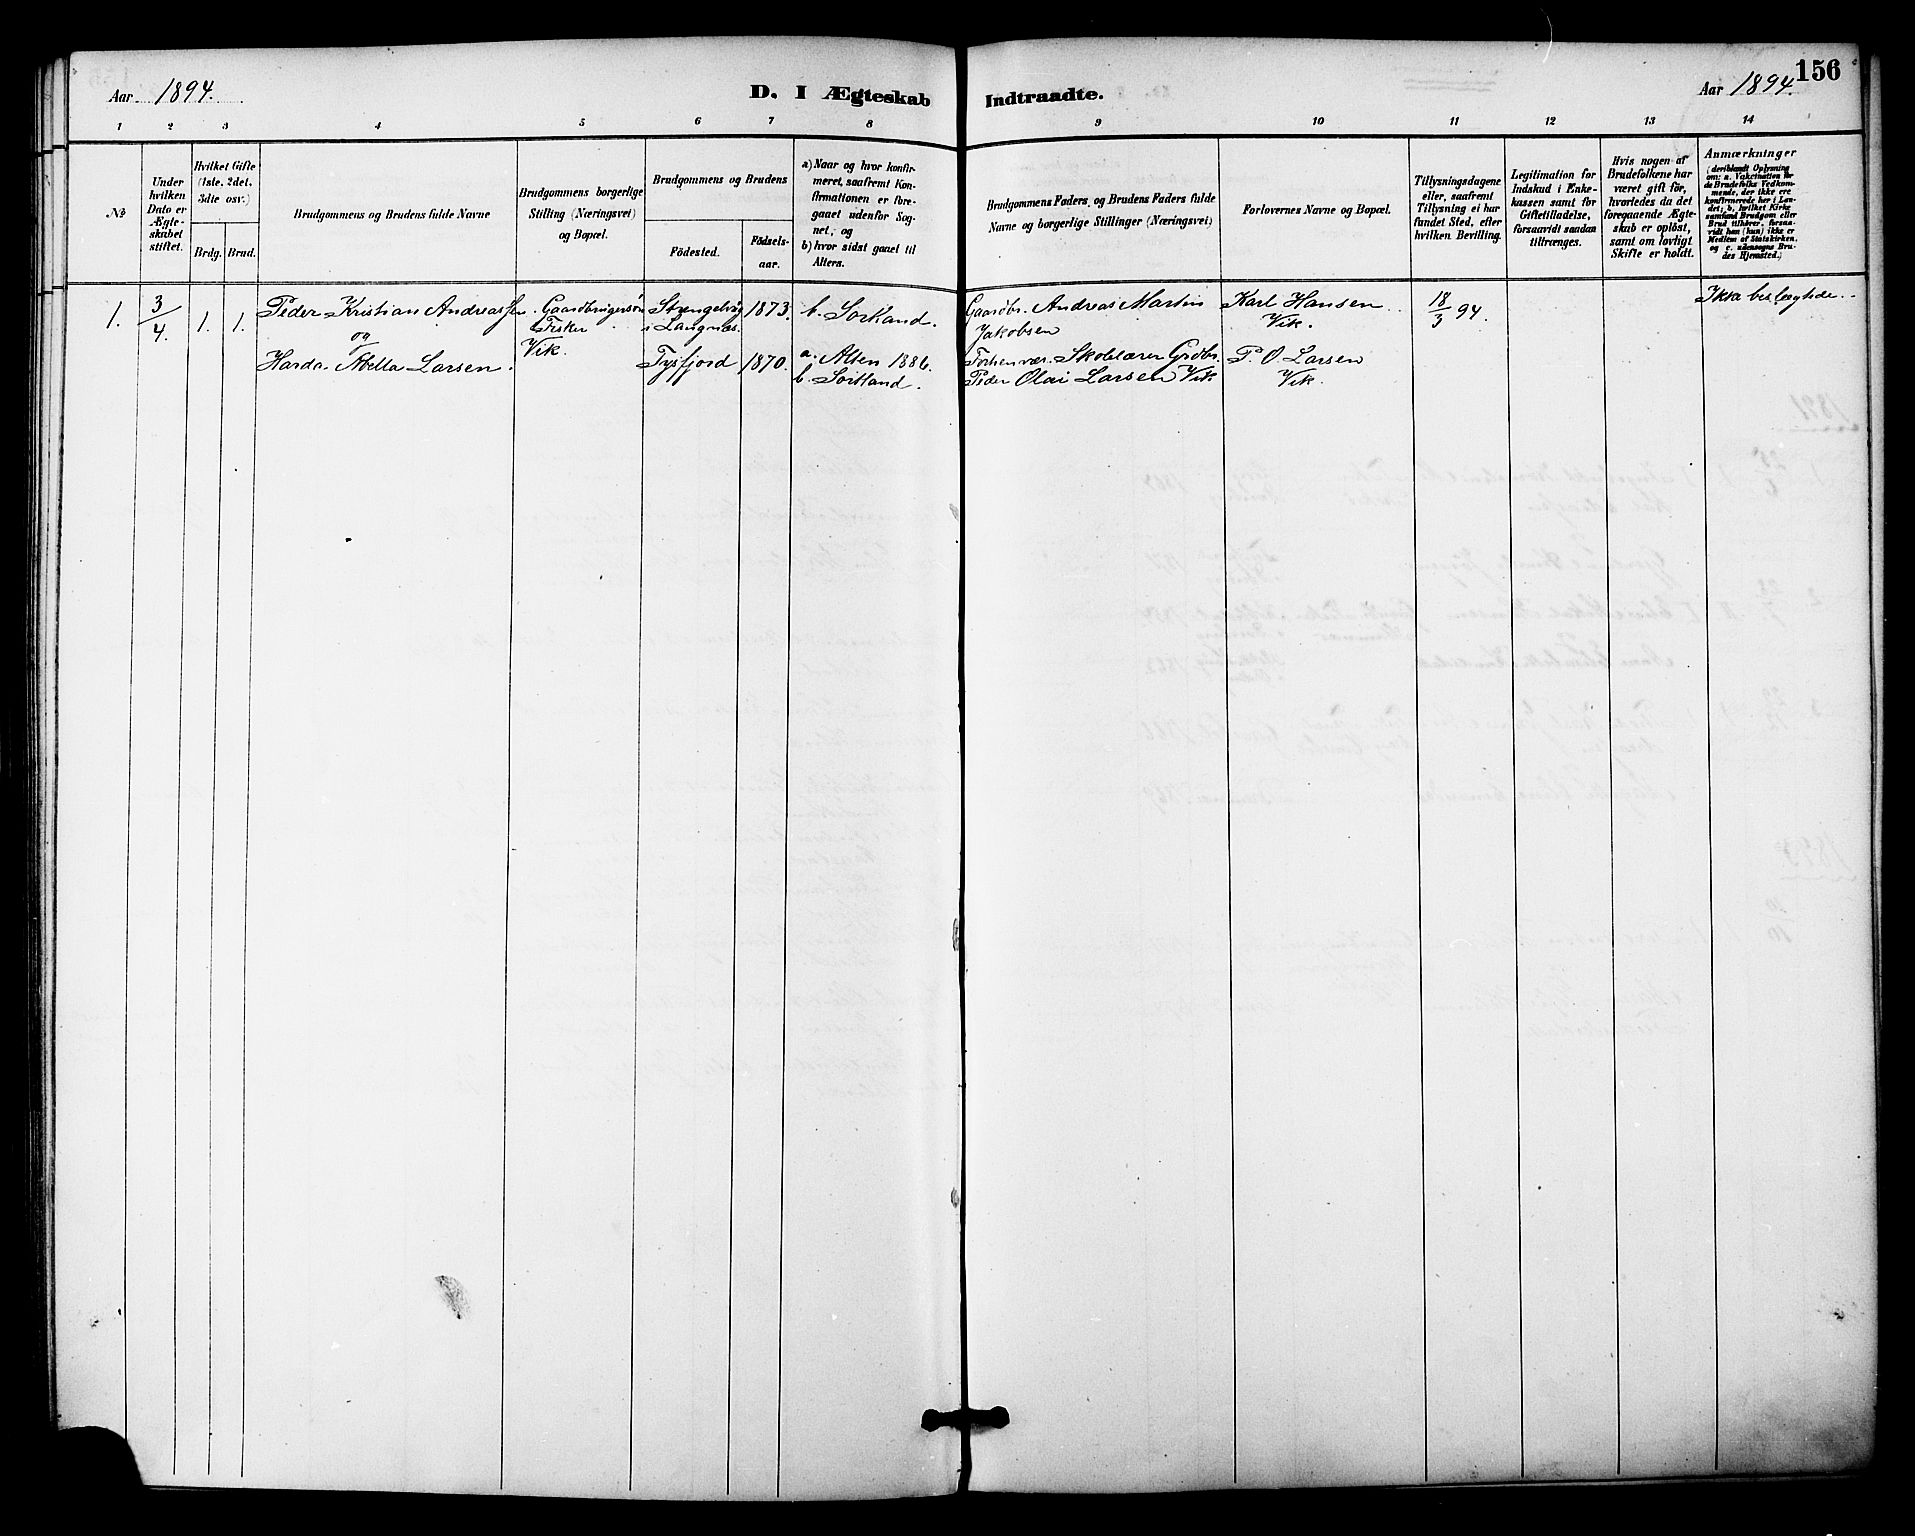 156
Aar 1894.
D. I Ægteskab Indtraadte.
Aar 1894.
1 2 3 4 5 6 7 8 9 10 11 12 13 14
No
Under
hvilken
Dato er
Ægte-
skabet
stiftet.
Hvilket Gifte
(1ste, 2det,
3dte osv.)
Brdg. Brud.
Brudgommens og Brudens fulde Navne
Brudgommens borgerlige
Stilling (Næringsvei)
og Bopæl.
Brudgommens og Brudens
Födested.
Födsels-
aar.
a) Naar og hvor konfir-
meret, saafremt Kon-
firmationen er fore-
gaaet udenfor Sog-
net, og
b) hvor sidst gaaet til
Alters.
Brudgommens Faders og Brudens Faders fulde
Navne og borgerlige Stillinger (Næringsvei)
Forlovernes Navne og Bopæl.
Tillysningsdagene
eller, saafremt
Tillysning ei har
fundet Sted, efter
hvilken Bevilling.
Legitimation for
Indskud i Enke-
kassen samt for
Giftetilladelse,
forsaavidt saadan
tiltrænges.
Hvis nogen af
Brudefolkene har
været gift för,
hvorledes da det
foregaaende Ægte-
skab er oplöst,
samt om lovligt
Skifte er holdt.
Anmærkninger
(deriblandt Oplysning
om: a. Vakcination for
de Brudefolks Vedkom-
mende, der ikke ere
konfirmerede her i Lan-
det; b. hvilket Kirke-
samfund Brudgom eller
Brud tilhörer, forsaa-
vidt han (hun) ikke er
Medlem af Statskirken,
og c. udensogns Bru-
des Hjemsted.)
1. 3/4. 1. 1.
Peder Kristian Andreassen
og
Harda Abella Larsen.
Gaardbrugersön
Fisker
Vik.
Strengelvåg
i Langnes.
1873.
Tysfjord 1870.
b. Sortland.
a. Alten 1886.
b. Sortland.
Gaardbr. Andreas Martin
Jakobsen
Forhenvær. Skolelærer Grdbr.
Peder Olai Larsen Vik
Karl Hansen
Vik.
P. O. Larsen
Vik.
18/3 94.
Ikke beslægtede.